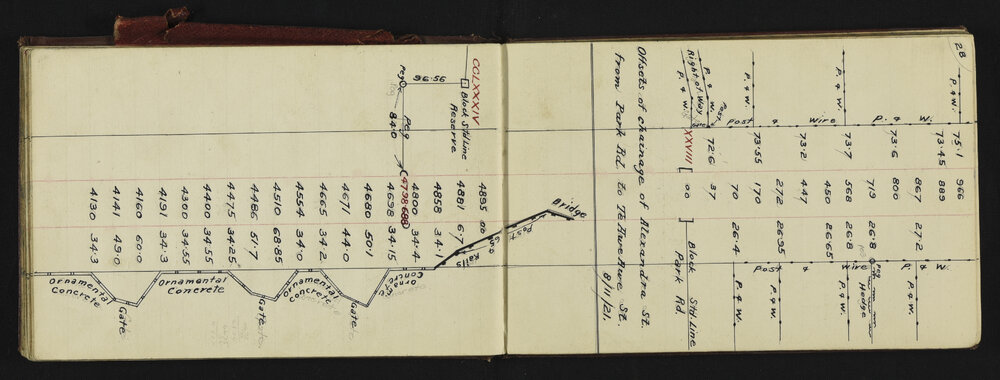 28
P. & W. 75.1 966
P. & W. 73.45 889
867 27.2 P. & W.
P. & W. 73.6 800
719 26.8 Peg Hedge
P. & W. Wire 73.7 568 26.8 Wire
450 26.65
73.2 447
& 272 26.95 & P. & W.
P. & W. Post 73.55 170 Post
70 26.4 P. & W.
P. & W. Post 72.6 37
Right of Way Gate
P. & W. XXVIII [00] Block Std Line
Park Rd.
Offsets of chainage of Alexandra St.
from Park Rd. to Te Awe Awe St.
8/11/21.
Bridge
4895
CCLXXXIV 4881 6.7 Post & Rails
Block Std Line 4858 34.1
Reserve
96.56 4800 34.4 Ornal
Peg 84.0 Peg 4798.688 Concrete
4698 34.15
4680 50.1
4671 44.0 Gate
4665 34.2
4554 34.0 Ornamental
Concrete
4510 68.85
4486 51.7 Gate
4475 34.25
4400 34.55 Ornamental
4300 34.55 Concrete
4191 34.3
4160 60.0
4141 49.0 Gate
4130 34.3 Ornamental
Concrete